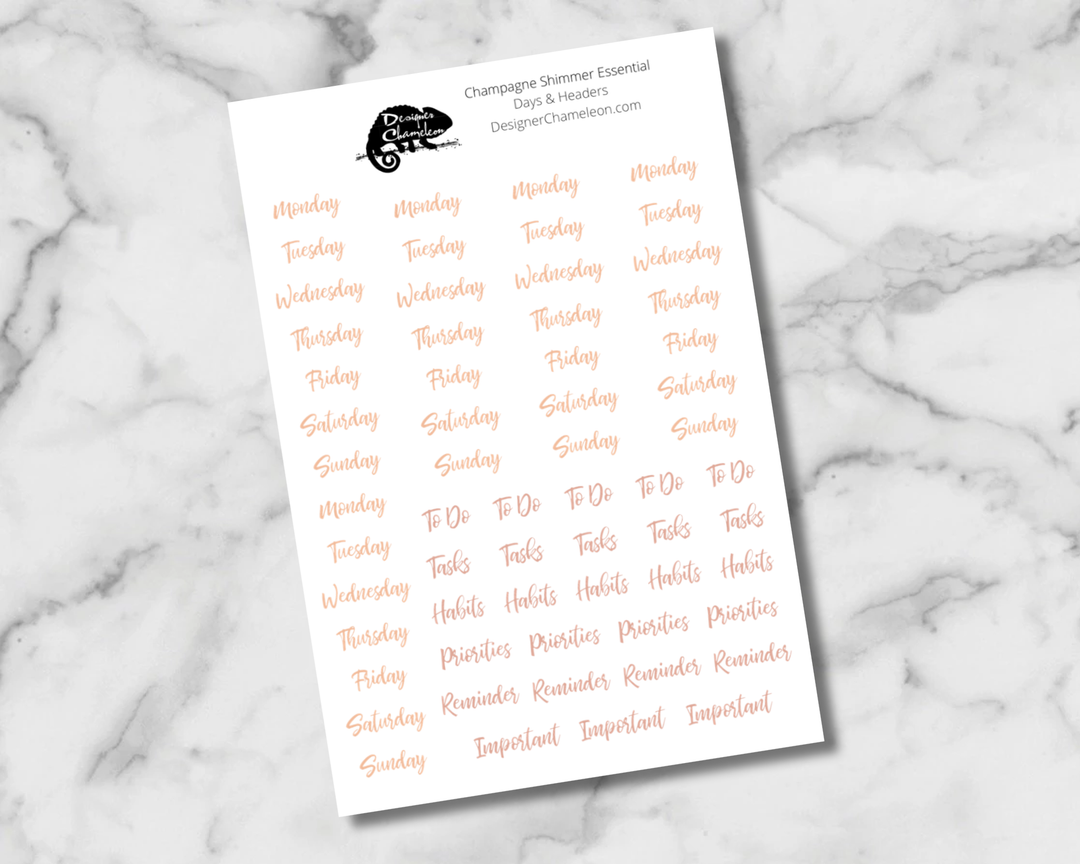 Designer
Chameleon
Champagne Shimmer Essential
Days & Headers
DesignerChameleon.com
Monday Monday Monday Monday
Tuesday Tuesday Tuesday Tuesday
Wednesday Wednesday Wednesday Wednesday
Thursday Thursday Thursday Thursday
Friday Friday Friday Friday
Saturday Saturday Saturday Saturday
Sunday Sunday Sunday Sunday
Monday To Do To Do To Do To Do To Do
Tuesday Tasks Tasks Tasks Tasks Tasks
Wednesday Habits Habits Habits Habits Habits
Thursday Priorities Priorities Priorities Priorities
Friday Reminder Reminder Reminder Reminder
Saturday Important Important Important
Sunday